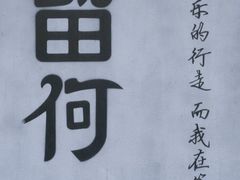 留何
乐的行走 而我在